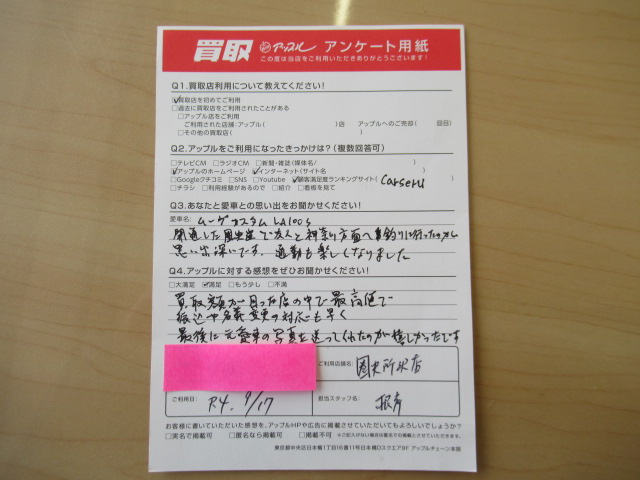 買取 アップル アンケート用紙
この度は当店をご利用いただきありがとうございます!
Q1.買取店利用について教えてください!
☑買取店を初めてご利用
□過去に買取店をご利用されたことがある
□アップル店をご利用
ご利用された店舗:アップル( )店 アップルへのご売却( 回目)
□その他の買取店( )
Q2.アップルをご利用になったきっかけは?(複数回答可)
□テレビCM □ラジオCM □新聞・雑誌(媒体名/ )
☑アップルのホームページ ☑インターネット(サイト名 )
□Googleクチコミ □SNS □Youtube ☑顧客満足度ランキングサイト( Carseru )
□チラシ □利用経験があるので □紹介 □看板を見て
Q3.あなたと愛車との思い出をお聞かせください!
愛車名: ムーヴカスタム LA100S
開通した圏央道で友人と神奈川方面へ釣りに行ったのが
思い出深いです。通勤も楽しくなりました
Q4.アップルに対する感想をぜひお聞かせください!
□大満足 ☑満足 □もう少し □不満
買取額が回った店の中で最高値で
振込や名義変更の対応も早く
最後に元愛車の写真を送ってくれたのが嬉しかったです
ご利用店舗名: 圏央所沢店
ご利用日: R4. 9/17 担当スタッフ名:
お客様に書いていただいた感想を、アップルHPや広告に掲載させていただいてもよろしいでしょうか?
□実名で掲載可 □匿名なら掲載可 □掲載不可 ※ご記入がない場合は匿名での掲載とさせていただきます。
東京都中央区日本橋1丁目16番11号日本橋Dスクエア9F アップルチェーン本部